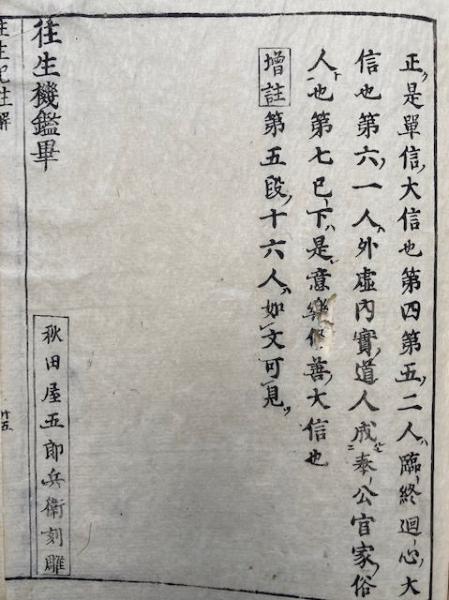 正是單信大信也第四第五二人臨終迴心大
信也第六一人外虛內實道人或奉公官家俗
人也第七已下是意樂善大信也
增註第五段十六人如文可見
往生機鑑畢
秋田屋五郎兵衛刻雕